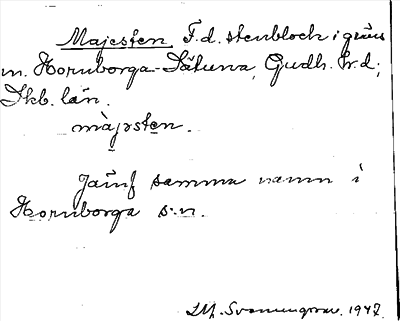 Majesten F.d. stenblock i gräns
m. Hornborga-Sätuna, Gudh. hr.d;
Skb. län.
màjsten.
Jämf samma namn i
Hornborga s:n.
1947